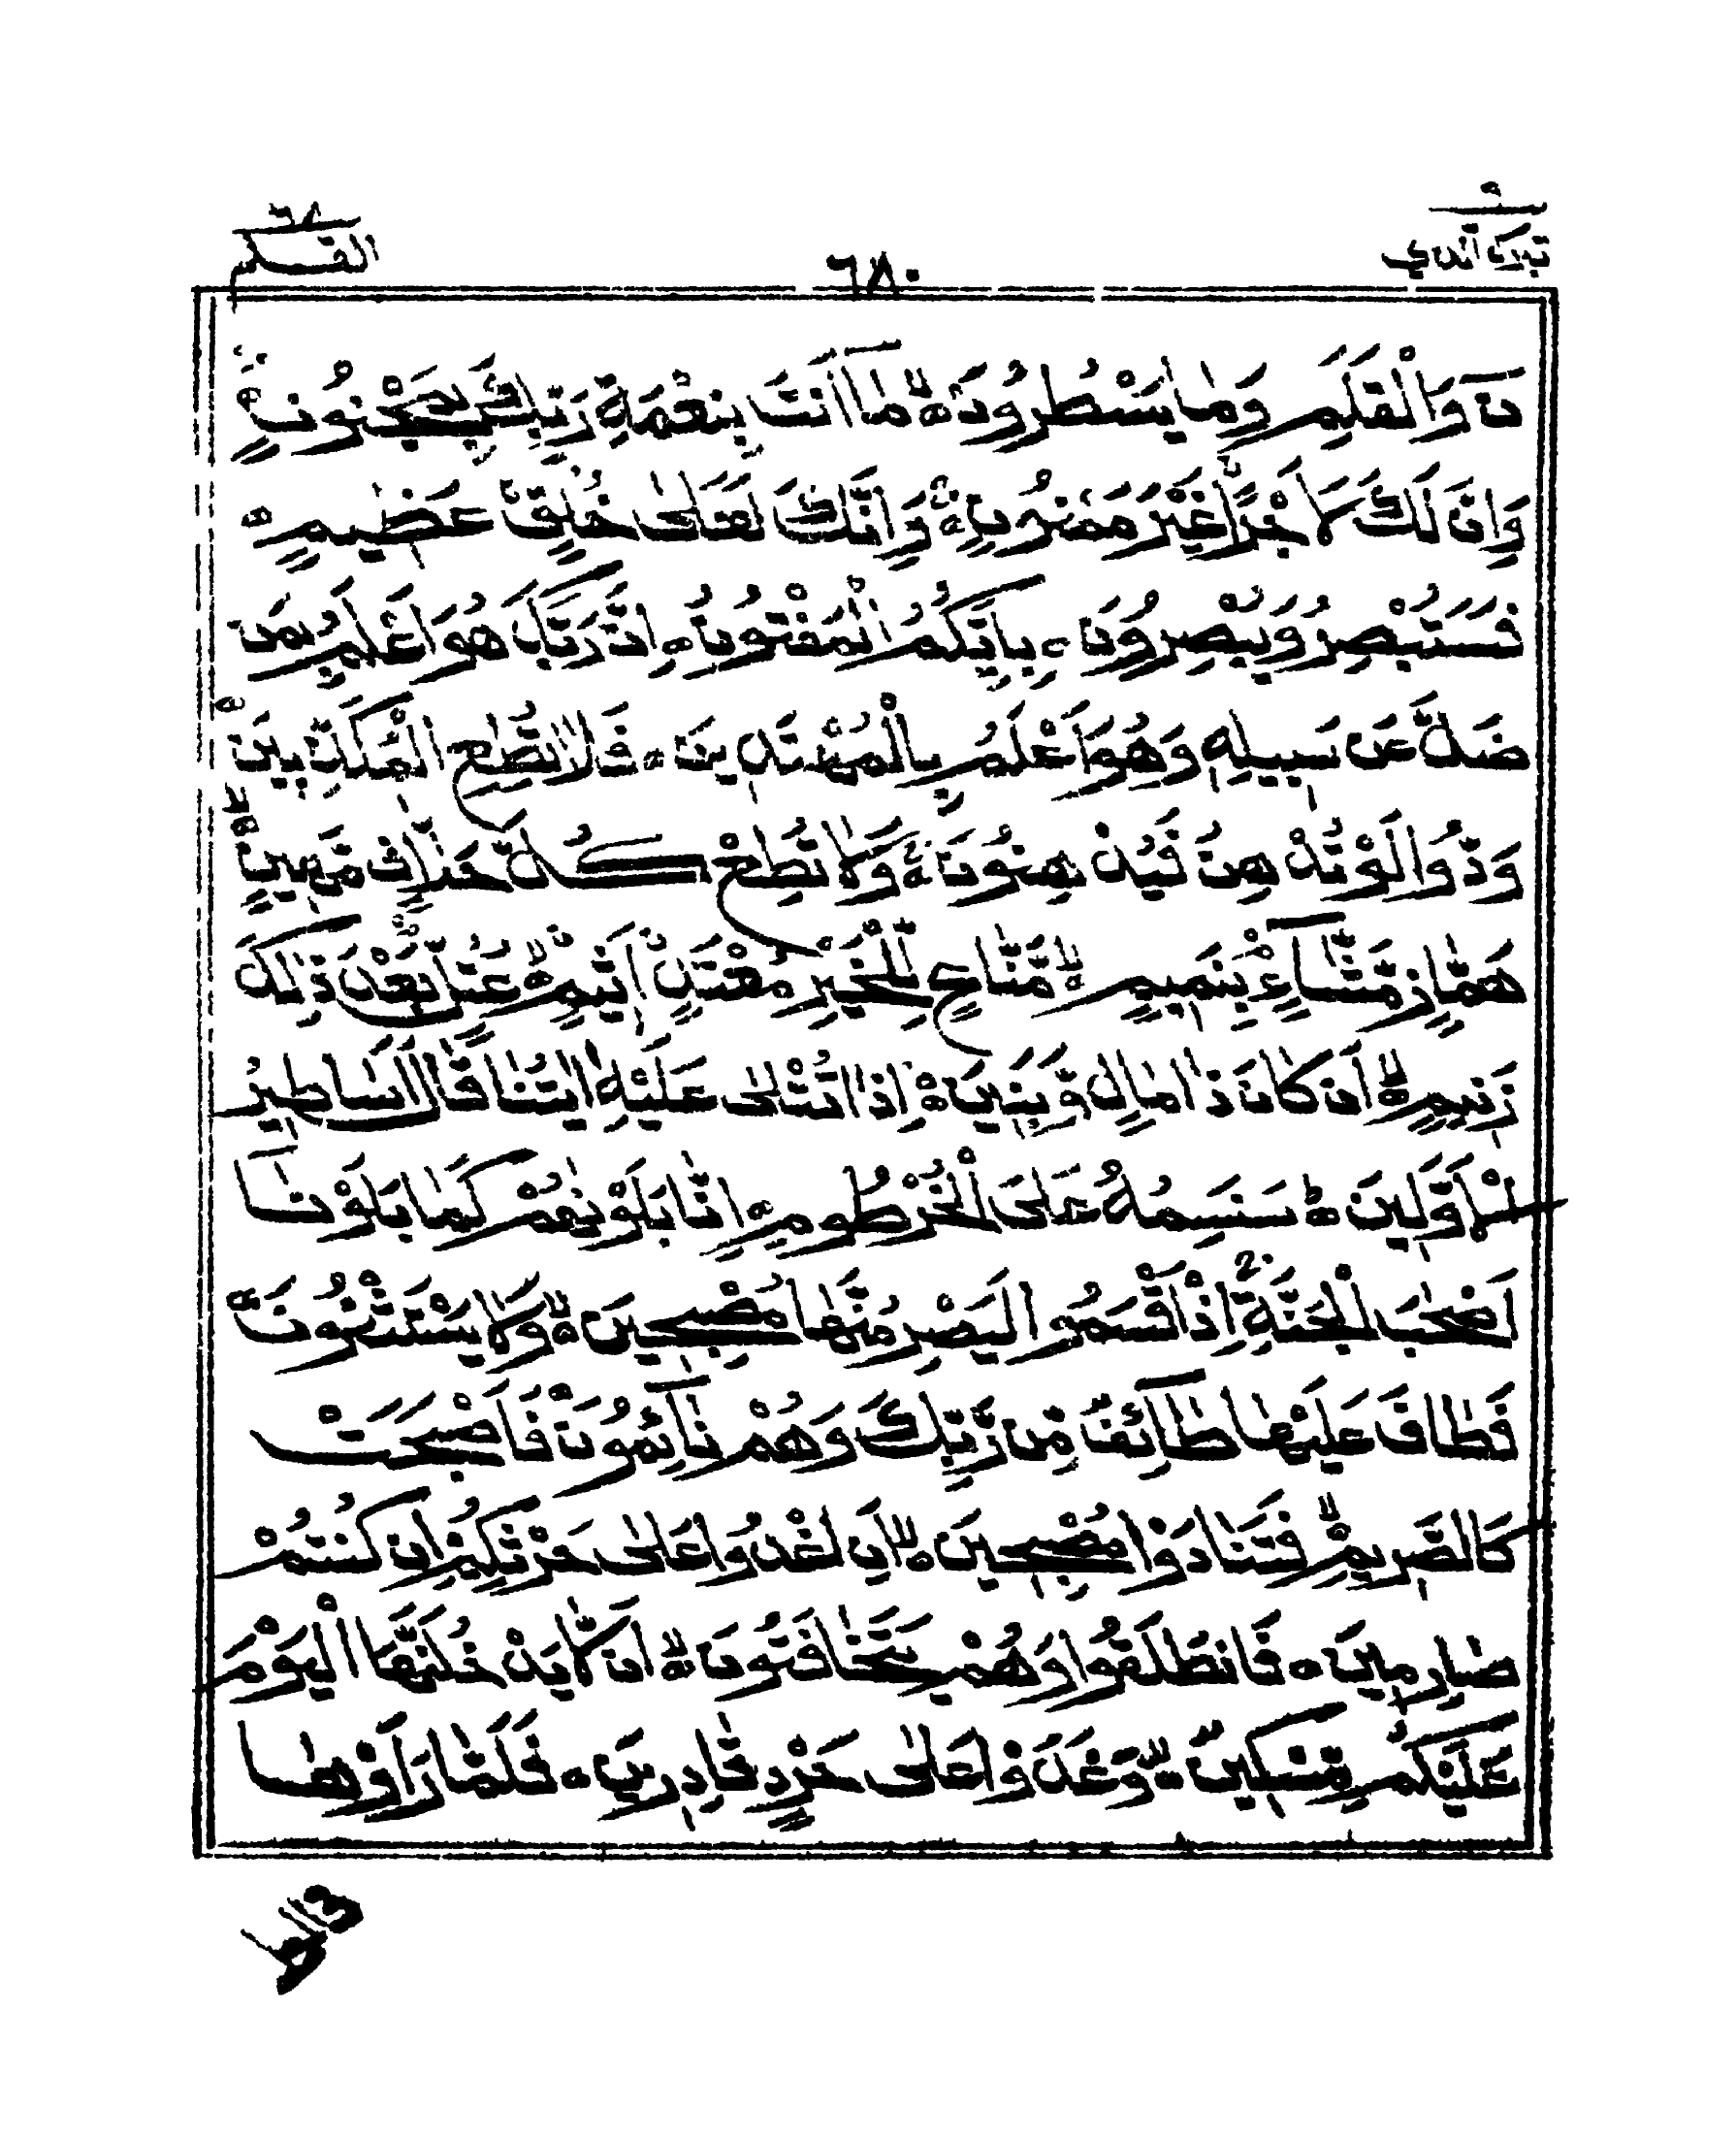 تبرك الذي ٢٩
٦٨٠
القلم ٦٨
نٓ وَالْقَلَمِ وَمَا يَسْطُرُوْنَ ۙ مَاۤ اَنْتَ بِنِعْمَةِ رَبِّكَ بِمَجْنُوْنٍ ۚ
وَاِنَّ لَكَ لَاَجْرًا غَيْرَ مَمْنُوْنٍ ۚ وَاِنَّكَ لَعَلٰى خُلُقٍ عَظِيْمٍ ۝
فَسَتُبْصِرُ وَيُبْصِرُوْنَ ۙ بِاَيِّكُمُ الْمَفْتُوْنُ ۝ اِنَّ رَبَّكَ هُوَ اَعْلَمُ بِمَنْ
ضَلَّ عَنْ سَبِيْلِهٖ وَهُوَ اَعْلَمُ بِالْمُهْتَدِيْنَ ۝ فَلَا تُطِعِ الْمُكَذِّبِيْنَ ۝
وَدُّوْا لَوْ تُدْهِنُ فَيُدْهِنُوْنَ ۝ وَلَا تُطِعْ كُلَّ حَلَّافٍ مَّهِيْنٍ ۙ
هَمَّازٍ مَّشَّآءٍ بِنَمِيْمٍ ۙ مَّنَّاعٍ لِّلْخَيْرِ مُعْتَدٍ اَثِيْمٍ ۙ عُتُلٍّ بَعْدَ ذٰلِكَ
زَنِيْمٍ ۙ اَنْ كَانَ ذَا مَالٍ وَّبَنِيْنَ ۗ اِذَا تُتْلٰى عَلَيْهِ اٰيٰتُنَا قَالَ اَسَاطِيْرُ
الْاَوَّلِيْنَ ۝ سَنَسِمُهٗ عَلَى الْخُرْطُوْمِ ۝ اِنَّا بَلَوْنٰهُمْ كَمَا بَلَوْنَاۤ
اَصْحٰبَ الْجَنَّةِ ۚ اِذْ اَقْسَمُوْا لَيَصْرِمُنَّهَا مُصْبِحِيْنَ ۙ وَلَا يَسْتَثْنُوْنَ ۝
فَطَافَ عَلَيْهَا طَآئِفٌ مِّنْ رَّبِّكَ وَهُمْ نَآئِمُوْنَ فَاَصْبَحَتْ
كَالصَّرِيْمِ ۙ فَتَنَادَوْا مُصْبِحِيْنَ ۙ اَنِ اغْدُوْا عَلٰى حَرْثِكُمْ اِنْ كُنْتُمْ
صَارِمِيْنَ ۝ فَانْطَلَقُوْا وَهُمْ يَتَخَافَتُوْنَ ۙ اَنْ لَّا يَدْخُلَنَّهَا الْيَوْمَ
عَلَيْكُمْ مِّسْكِيْنٌ ۙ وَّغَدَوْا عَلٰى حَرْدٍ قَادِرِيْنَ ۝ فَلَمَّا رَاَوْهَا
قالوا